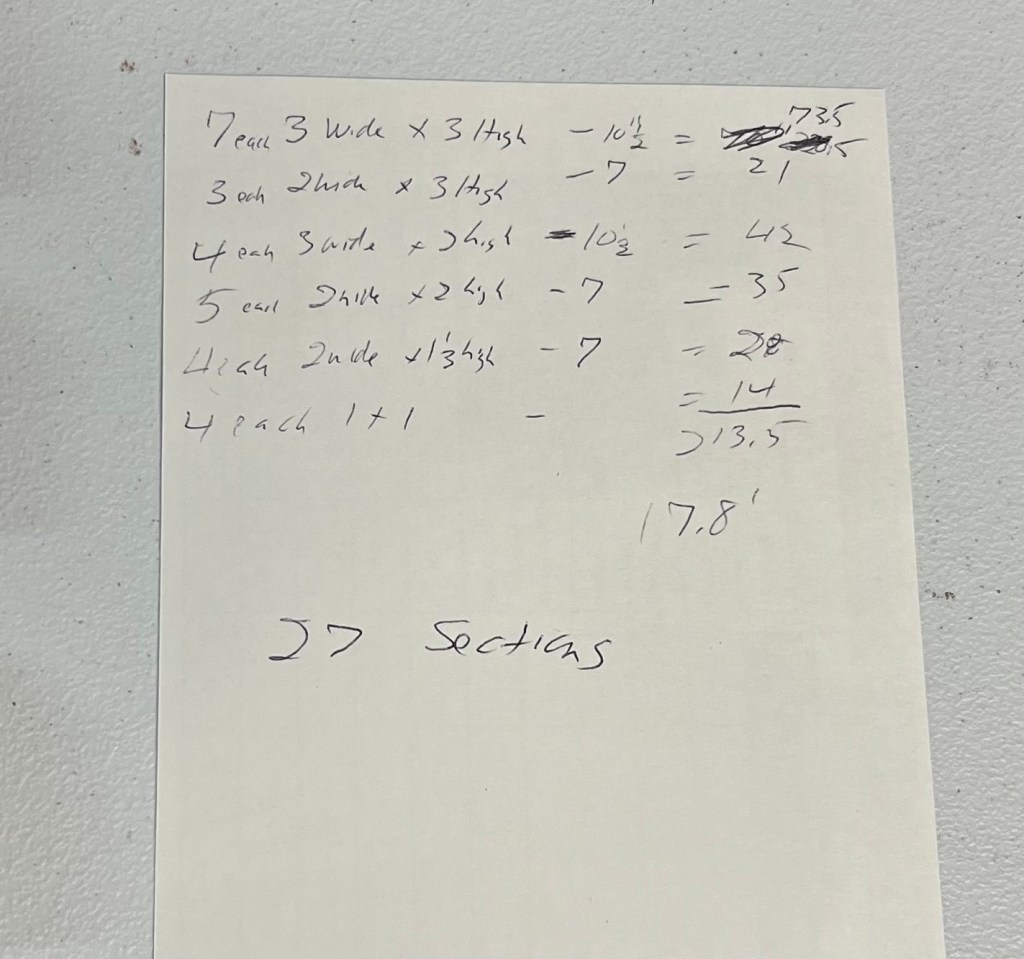 7 each 3 wide x 3 High - 10 1/2" = 735
3 each 2 wide x 3 High - 7 = 21
4 each 3 wide x 2 high - 10 1/2 = 42
5 each 2 wide x 2 high - 7 = 35
4 each 2 wide x 1 1/3 high - 7 = 28
4 each 1 + 1 - = 14
213.5
17.8'
27 Sections